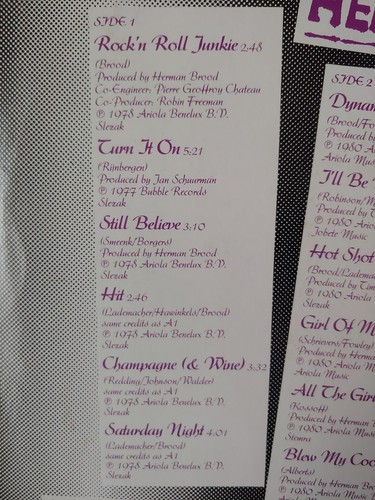 SIDE 1
Rock'n Roll Junkie 2:48
(Brood)
Produced by Herman Brood
Co-Engineer: Pierre Geoffroy Chateau
Co-Producer: Robin Freeman
℗ 1978 Ariola Benelux B.V.
Slezak
Turn It On 5:21
(Rijnbergen)
Produced by Jan Schuurman
℗ 1977 Bubble Records
Slezak
Still Believe 3:10
(Smeenk/Borgers)
Produced by Herman Brood
℗ 1978 Ariola Benelux B.V.
Slezak
Hit 2:46
(Lademacher/Hawinkels/Brood)
same credits as A1
℗ 1978 Ariola Benelux B.V.
Slezak
Champagne (& Wine) 3:32
(Redding/Johnson/Walder)
same credits as A1
℗ 1978 Ariola Benelux B.V.
Slezak
Saturday Night 4:01
(Lademacher/Brood)
same credits as A1
℗ 1978 Ariola Benelux B.V.
Slezak
HE
SIDE 2
Dynam
(Brood/Fo
Produced by
℗ 1980 A
Ariola Mus
I'll Be
(Robinson/M
Produced by T
℗ 1980 Ario
Jobete Music
Hot Shot
(Brood/Lademac
Produced by Tim
℗ 1980 Ariola
Slezak
Girl Of M
(Schrievers/Fowley)
Produced by Herma
℗ 1980 Ariola
Ariola Music
All The Girl
(Kossoff)
Produced by Herman
℗ 1980 Ariola
Stemra
Blew My Coo
(Alberts)
Produced by Herman Br
℗ 1980 Ariola